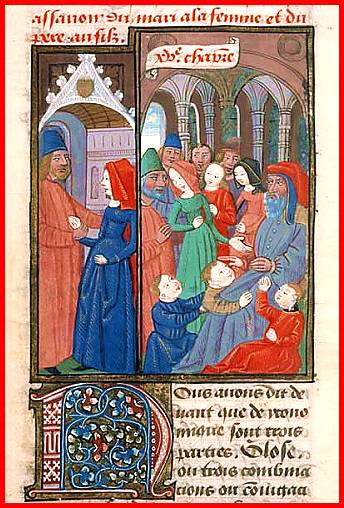 assanoir du mari a la femme et du
pere au filz.
xve. chapre
Nous auons dit de
uant que de yrono
mique sont trois
parties. Glose.
ou trois combina
cions ou coniuga